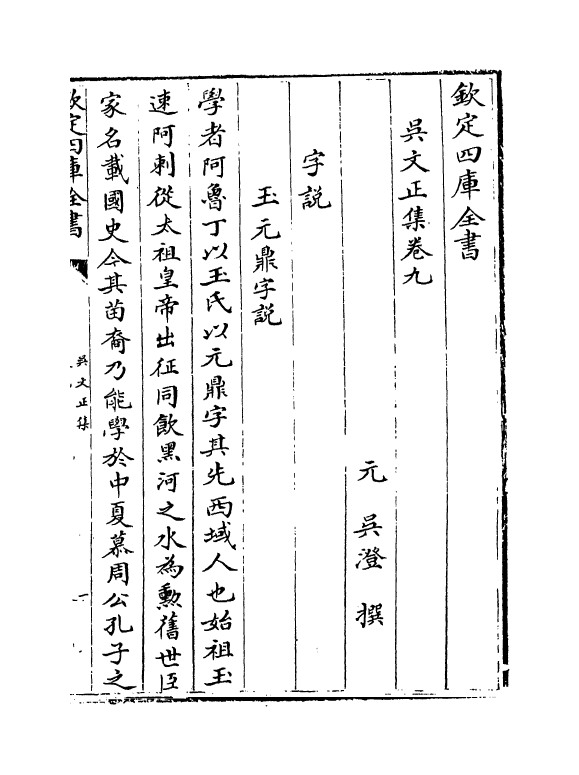 欽定四庫全書
吳文正集卷九
元　吳澄　撰
字説
玉元鼎字説
學者阿魯丁以玉氏以元鼎字其先西域人也始祖玉
速阿剌從太祖皇帝出征同飲黑河之水為勲舊世臣
家名載國史今其苗裔乃能學於中夏慕周公孔子之
欽定四庫全書
吳文正集
一